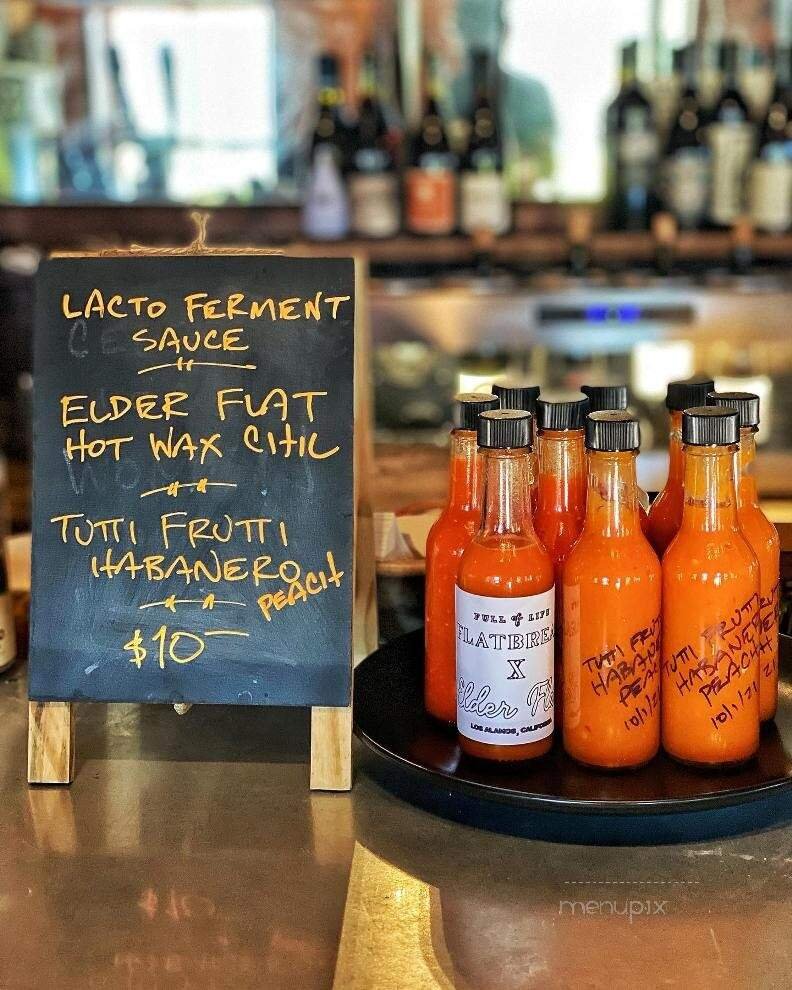 LACTO FERMENT
SAUCE
ELDER FLAT
HOT WAX CHIL
TUTTI FRUTTI
HABANERO
PEACH
$10
FULL of LIFE
FLATBREA
X
Elder Fl
LOS ALAMOS, CALIFORNIA
TUTTI FRUT
HABANE
PEA
10/1/2
TUTTI FRUTTI
HABANERO
PEACH
10/1/21
menupix